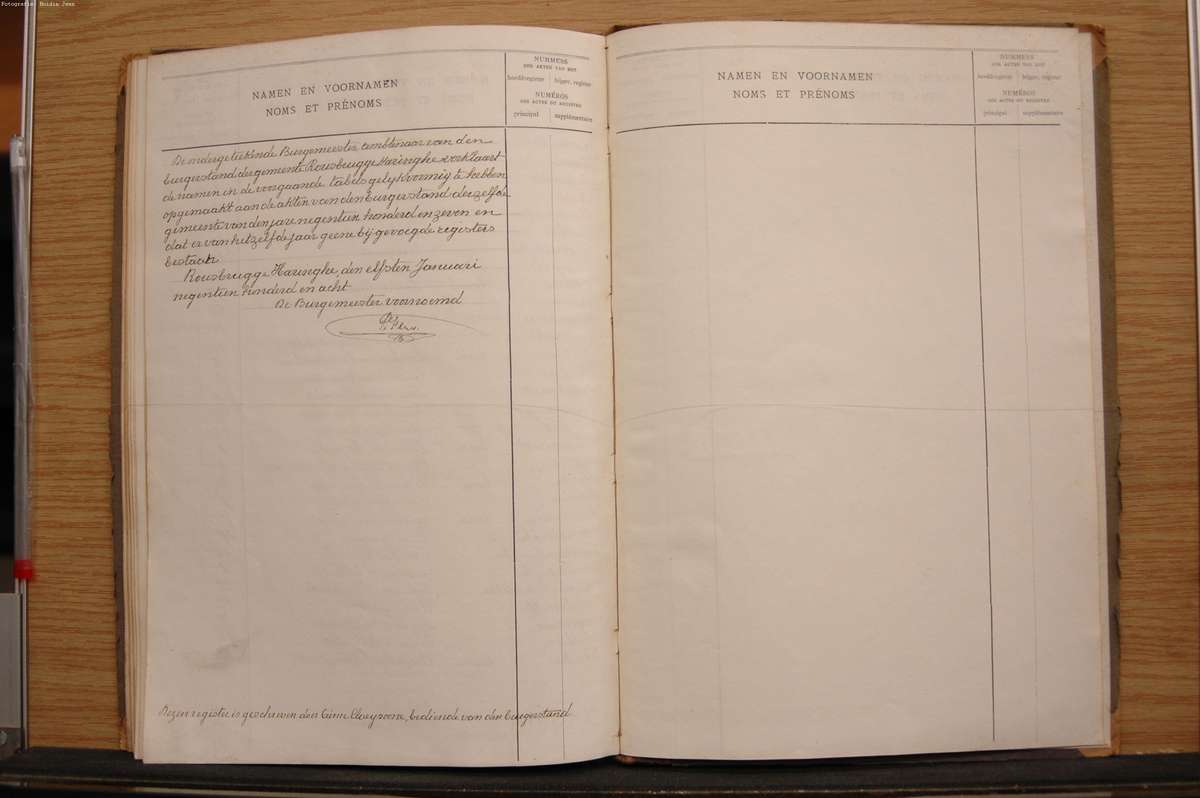 Fotografie: Buidin Jean
NAMEN EN VOORNAMEN
NOMS ET PRÉNOMS
NUMMERS
DER AKTEN VAN HET
hoofdregister bijgev. register
NUMÉROS
DES ACTES DU REGISTRE
principal supplémentaire
De ondergeteekende Burgemeester ambtenaar van den
burgerstand der gemeente Rousbrugge Haringhe verklaart
de namen in de voorgaande tabels gelijkvormig te hebben
opgemaakt aan de akten van den burgerstand derzelfde
gemeente van den jare negentien honderd en zeven en
dat er van hetzelfde jaar geene bijgevoegde registers
bestaan
Rousbrugge Haringhe, den elfsten Januari
negentien honderd en acht
De Burgemeester voornoemd
Dezen register is geschreven door, bediende van den burgerstand
NAMEN EN VOORNAMEN
NOMS ET PRÉNOMS
NUMMERS
DER AKTEN VAN HET
hoofdregister bijgev. register
NUMÉROS
DES ACTES DU REGISTRE
principal supplémentaire